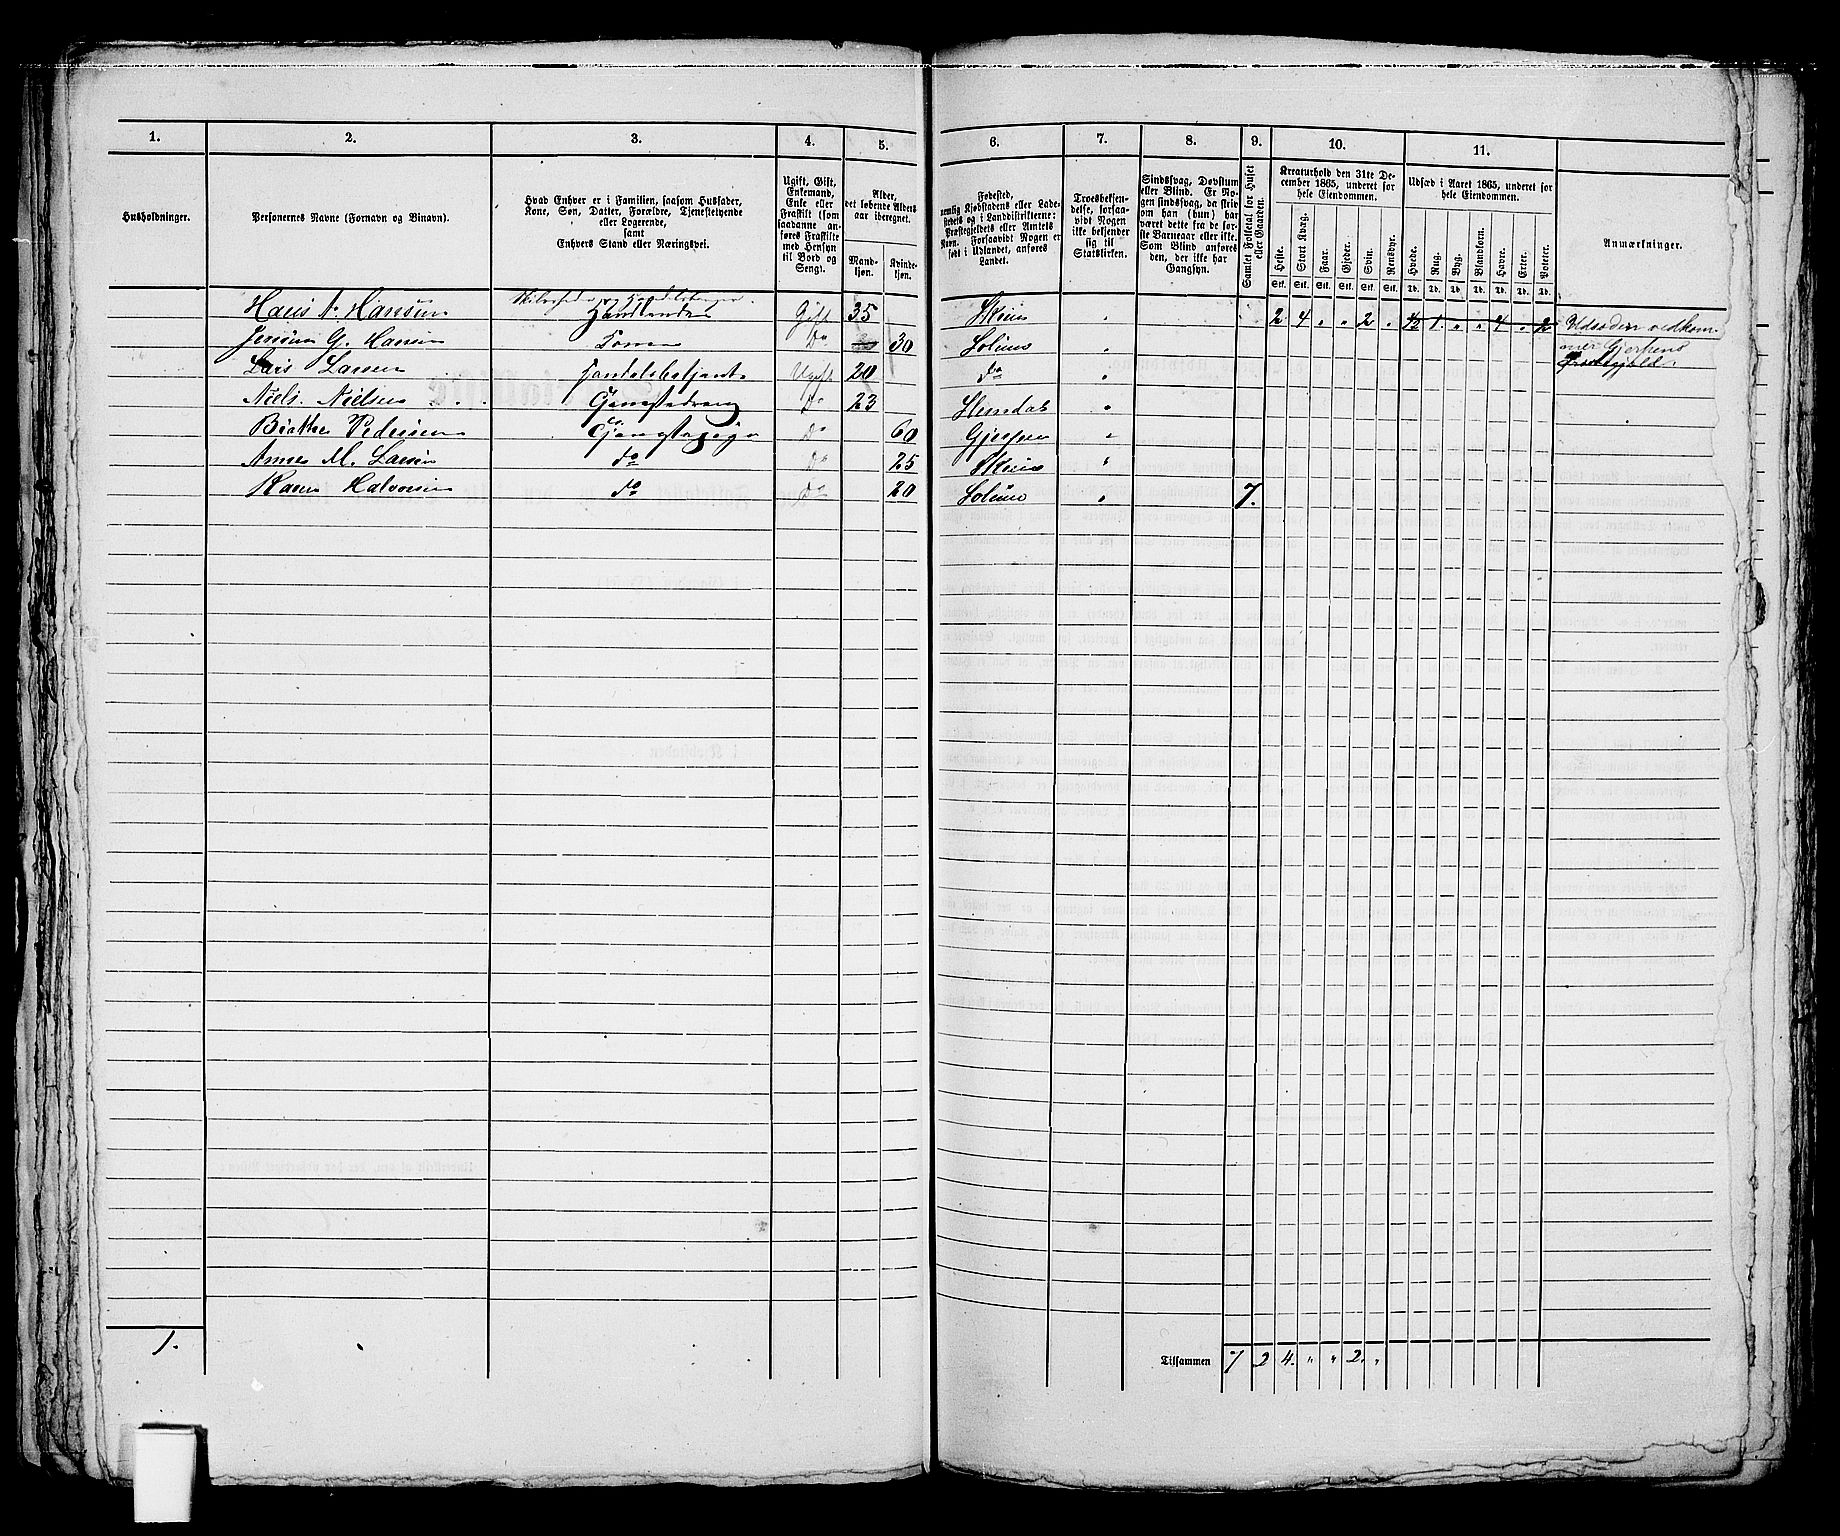 1. 2. 3. 4. 5. 6. 7. 8. 9. 10. 11.
Husholdninger.
Personernes Navne (Fornavn og Binavn).
Hvad Enhver er i Familien, saasom Husfader,
Kone, Søn, Datter, Forældre, Tjenestetyende
eller Logerende,
samt
Enhvers Stand eller Næringsvei.
Ugift, Gift,
Enkemand,
Enke eller
Fraskilt (som
saadanne an-
føres Fraskilte
med Hensyn
til Bord og
Seng).
Alder,
det løbende Alders-
aar iberegnet.
Mand-
kjøn.
Kvinde-
kjøn.
Fødested,
nemlig Kjøbstadens eller Lade-
stedets og i Landdistrikterne:
Præstegjeldets eller Amtets
Navn. Forsaavidt Nogen er
født i Udlandet, anføres
Landet.
Troesbekjen-
delse, forsaa-
vidt Nogen
ikke bekjender
sig til
Statskirken.
Sindssvag, Døvstum
eller Blind. Er No-
gen sindssvag, da skriv
om han (hun) har
været dette fra de før-
ste Barneaar eller ikke.
Som Blind anføres
den, der ikke har
Gangsyn.
Samlet Folketal for Huset
eller Gaarden.
Kreaturhold den 31te De-
cember 1865, underet for
hele Eiendommen.
Heste. Stort Kvæg. Faar. Gjeder. Svin. Rensdyr.
Stk. Stk. Stk. Stk. Stk. Stk.
Udsæd i Aaret 1865, underet for
hele Eiendommen.
Hvede. Rug. Byg. Blandkorn. Havre. Erter. Poteter.
Td. Td. Td. Td. Td. Td. Td.
Anmærkninger.
Hans N. Hansen Handlende Gift 35 Skien " 2 4 " " 2 " ½ 1 " " 4 " 2 Udsæden vedkom-
G. Hansen Kone Do 30 Solum " mer Gjerpens
Lars Larsen Handelsbetjent Ugift 20 do " Præstegjeld.
Niels Nielsen Do 23 Slemdal "
Pedersen Do 60 Gjerpen "
Anne M. Larsen do Do 25 Skien "
Karen Halvorsen do Do 20 Solum " 7.
1.
Tilsammen 7 2 4. " " 2. "